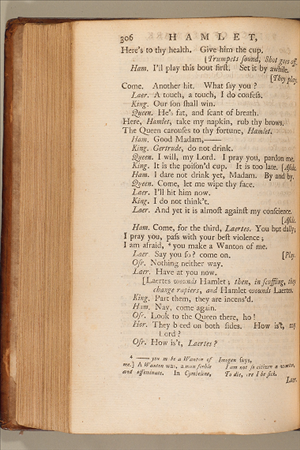 306 HAMLET,
Here's to thy health. Give him the cup.
[Trumpets sound, Shot goes off.
Ham. I'll play this bout first. Set it by awhile.
[They play.
Come. Another hit. What say you?
Laer. A touch, a touch, I do confess.
King. Our son shall win.
Queen. He's fat, and scant of breath.
Here, Hamlet, take my napkin, rub thy brows.
The Queen carouses to thy fortune, Hamlet.
Ham. Good Madam,——
King. Gertrude, do not drink.
Queen. I will, my Lord. I pray you, pardon me.
King. It is the poison'd cup. It is too late. [Aside.
Ham. I dare not yet, Madam. By and by.
Queen. Come, let me wipe thy face.
Laer. I'll hit him now.
King. I do not think't.
Laer. And yet it is almost against my conscience.
[Aside.
Ham. Come, for the third, Laertes. You but dally;
I pray you, pass with your best violence;
I am afraid, you make a Wanton of me.
Laer Say you so? come on. [Play.
Osr. Nothing neither way.
Laer. Have at you now.
[Laertes wounds Hamlet; then, in scuffling, they
change rapiers, and Hamlet wounds Laertes.
King. Part them, they are incens'd.
Ham. Nay, come again.
Osr. Look to the Queen there, ho!
Hor. They bleed on both sides. How is't, my
Lord?
Osr. How is't, Laertes?
—— you make a Wanton of
me.] A Wanton was, a man feeble
and effeminate. In Cymbeline,
Imogen says,
I am not so citizen a wanton,
To die, ere I be sick.
Laer.